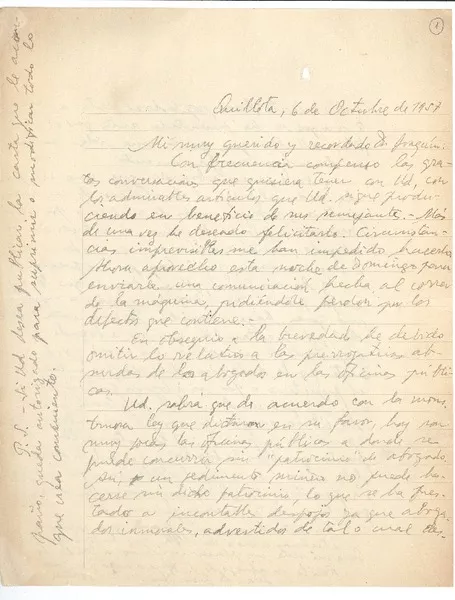 1
Quillota, 6 de Octubre de 1957
Mi muy querido y recordado Dn Joaquín:
Con frecuencia compenso las gra-
tas conversaciones que quisiera tener con Ud, con
los admirables artículos que Ud. sigue produ-
ciendo en beneficio de sus semejantes.- Más
de una vez he deseado felicitarlo. Circunstan-
cias imprevisibles me han impedido hacerlo
Ahora aprovecho esta noche de Domingo para
enviarle una comunicación hecha al correr
de la máquina, pidiéndole perdón por los
defectos que contiene.-
En obsequio a la brevedad he debido
omitir lo relativo a las prerrogativas ab-
surdas de los abogados en las oficinas públi-
cas.
Ud. sabrá que de acuerdo con la mons-
truosa ley que dictaron en su favor, hoy son
muy pocas las oficinas públicas a donde se
puede concurrir sin "patrocinio" de abogado,
Así, un pedimento minero no puede ha-
cerse sin dicho patrocinio, lo que se ha pres-
tado a incontable despojos ya que aboga-
dos inmorales, advertidos de tal o cual des-
P.S. - Si Ud desea publicar la carta que le acom-
paño, queda autorizado para suprimir o modificar todo lo
que crea conveniente.